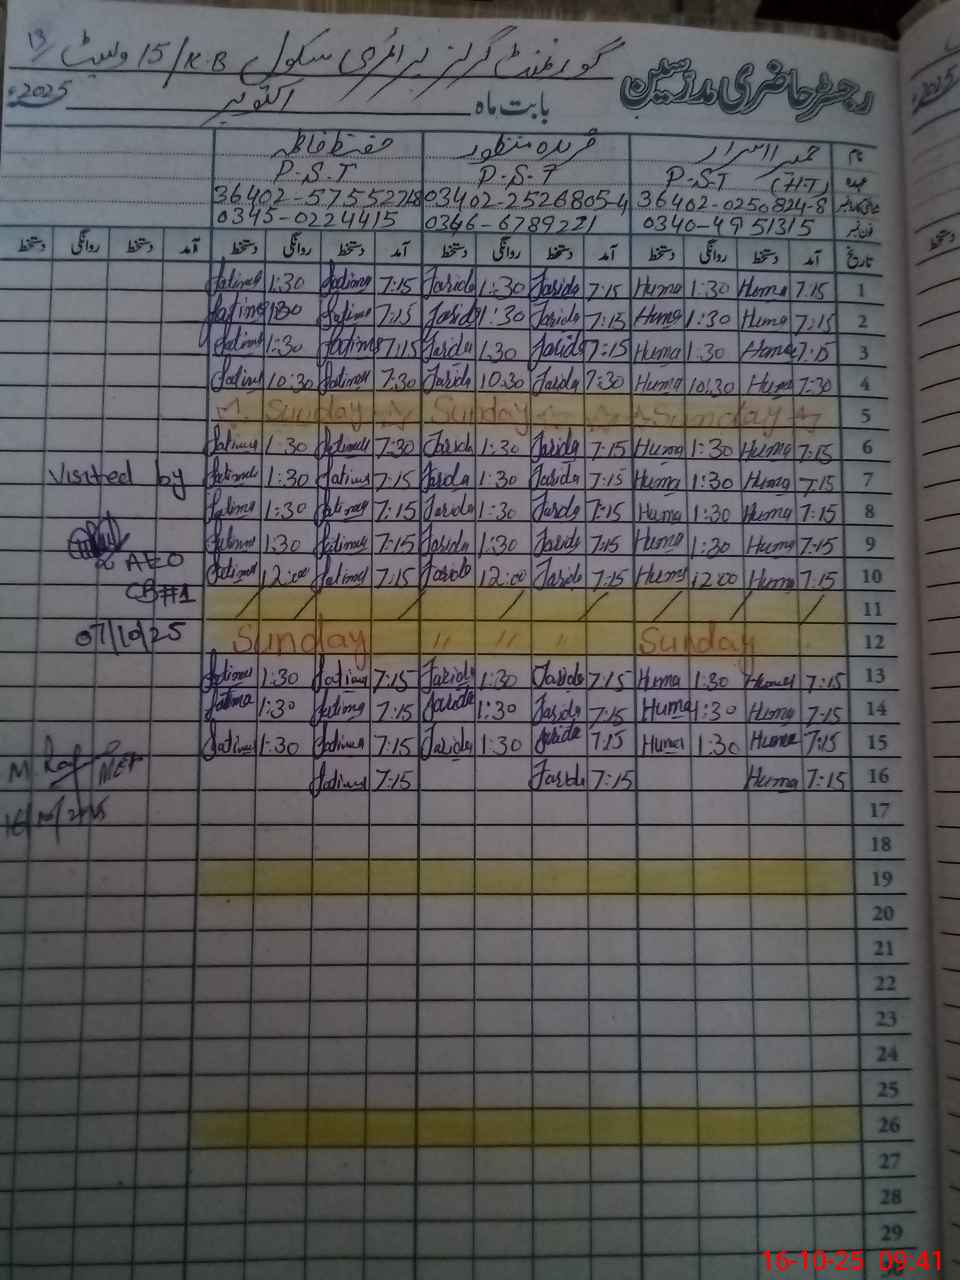 13
رجسٹر حاضری مدرسین گورنمنٹ گرلز پرائمری سکول 15/K.B ویسٹ
بابت ماہ اکتوبر 2025
نام حمیرا اسرار فریدہ منظور حفیظ فاطمہ
عہدہ P.S.T (HT) P.S.T P.S.T
36402-0250824-8 03402-2526805-4 36402-5755227-8
فون نمبر 0340-4951315 0346-6789221 0345-0224415
تاریخ آمد دستخط روانگی دستخط آمد دستخط روانگی دستخط آمد دستخط روانگی دستخط آمد دستخط روانگی دستخط
1 7:15 Huma 1:30 Huma 7:15 Farida 1:30 Farida 7:15 Fatima 1:30 Fatima
2 7:15 Huma 1:30 Huma 7:15 Farida 1:30 Farida 7:15 Fatima 1:30 Fatima
3 7:15 Huma 1:30 Huma 7:15 Farida 1:30 Farida 7:15 Fatima 1:30 Fatima
4 7:30 Huma 10:30 Huma 7:30 Farida 10:30 Farida 7:30 Fatima 10:30 Fatima
5 Sunday Sunday Sunday
6 7:15 Huma 1:30 Huma 7:15 Farida 1:30 Farida 7:30 Fatima 1:30 Fatima
7 7:15 Huma 1:30 Huma 7:15 Farida 1:30 Farida 7:15 Fatima 1:30 Fatima
Visited by
8 7:15 Huma 1:30 Huma 7:15 Farida 1:30 Farida 7:15 Fatima 1:30 Fatima
9 7:15 Huma 1:30 Huma 7:15 Farida 1:30 Farida 7:15 Fatima 1:30 Fatima
AEO
10 7:15 Huma 12:00 Huma 7:15 Farida 12:00 Farida 7:15 Fatima 12:00 Fatima
CB#1
11 / / / / / / / /
12 Sunday " " " Sunday
07/10/25
13 7:15 Huma 1:30 Huma 7:15 Farida 1:30 Farida 7:15 Fatima 1:30 Fatima
14 7:15 Huma 1:30 Huma 7:15 Farida 1:30 Farida 7:15 Fatima 1:30 Fatima
15 7:15 Huma 1:30 Huma 7:15 Farida 1:30 Farida 7:15 Fatima 1:30 Fatima
16 7:15 Huma 7:15 Farida 7:15 Fatima
M.
16/10/2025
17
18
19
20
21
22
23
24
25
26
27
28
29
2025
دستخط
16-10-25 09:41